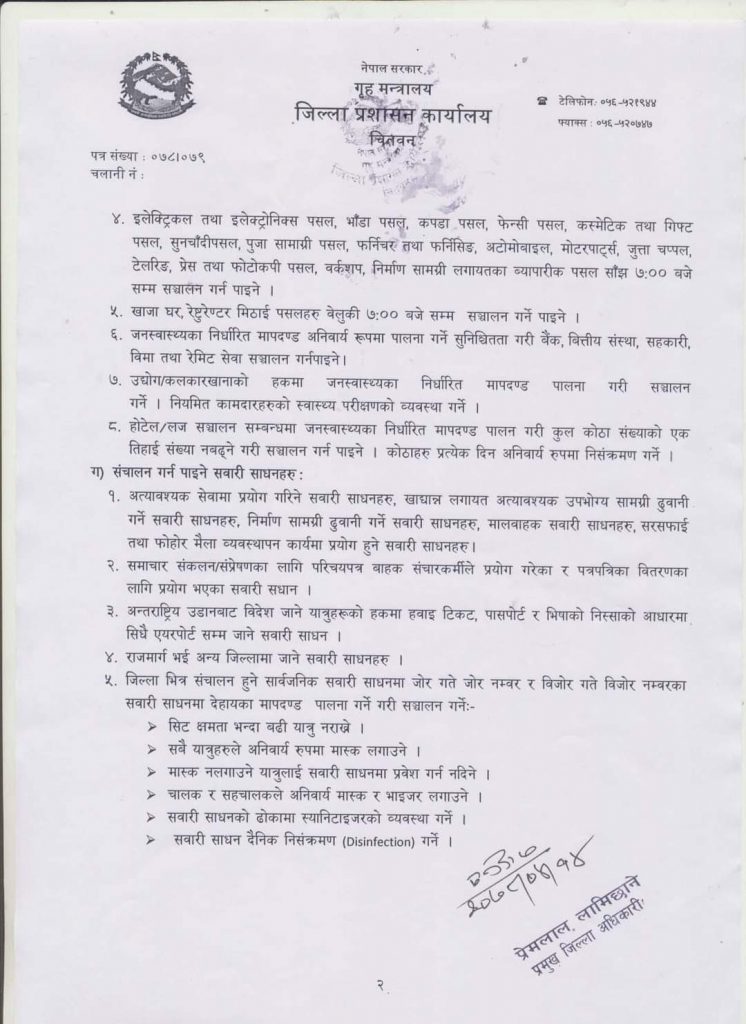 नेपाल सरकार
गृह मन्त्रालय
जिल्ला प्रशासन कार्यालय
चितवन
☎ टेलिफोन: ०५६-५२१९४४
फ्याक्स : ०५६-५२०७४७
पत्र संख्या : ०७८।०७९
चलानी नं :
४. इलेक्ट्रिकल तथा इलेक्ट्रोनिक्स पसल, भाँडा पसल, कपडा पसल, फेन्सी पसल, कस्मेटिक तथा गिफ्ट
पसल, सुनचाँदीपसल, पुजा सामाग्री पसल, फर्निचर तथा फर्निसिङ, अटोमोबाइल, मोटरपार्ट्स, जुत्ता चप्पल,
टेलरिङ, प्रेस तथा फोटोकपी पसल, वर्कशप, निर्माण सामग्री लगायतका व्यापारीक पसल साँझ ७:०० बजे
सम्म सञ्चालन गर्न पाइने ।
५. खाजा घर, रेष्टुरेण्टर मिठाई पसलहरु बेलुकी ७:०० बजे सम्म सञ्चालन गर्ने पाइने ।
६. जनस्वास्थ्यका निर्धारित मापदण्ड अनिवार्य रूपमा पालना गर्ने सुनिश्चितता गरी बैंक, बित्तीय संस्था, सहकारी,
विमा तथा रेमिट सेवा सञ्चालन गर्नपाइने।
७. उद्योग/कलकारखानाको हकमा जनस्वास्थ्यका निर्धारित मापदण्ड पालना गरी सञ्चालन
गर्ने । नियमित कामदारहरुको स्वास्थ्य परीक्षणको व्यवस्था गर्ने ।
८. होटेल/लज सञ्चालन सम्बन्धमा जनस्वास्थ्यका निर्धारित मापदण्ड पालन गरी कुल कोठा संख्याको एक
तिहाई संख्या नबढ्ने गरी सञ्चालन गर्न पाइने । कोठाहरु प्रत्येक दिन अनिवार्य रुपमा निसंक्रमण गर्ने ।
ग) संचालन गर्न पाइने सवारी साधनहरु :
१. अत्यावश्यक सेवामा प्रयोग गरिने सवारी साधनहरु, खाद्यान्न लगायत अत्यावश्यक उपभोग्य सामग्री ढुवानी
गर्ने सवारी साधनहरु, निर्माण सामग्री ढुवानी गर्ने सवारी साधनहरु, मालवाहक सवारी साधनहरु, सरसफाई
तथा फोहोर मैला व्यवस्थापन कार्यमा प्रयोग हुने सवारी साधनहरु।
२. समाचार संकलन/संप्रेषणका लागि परिचयपत्र बाहक संचारकर्मीले प्रयोग गरेका र पत्रपत्रिका वितरणका
लागि प्रयोग भएका सवारी सधान ।
३. अन्तराष्ट्रिय उडानबाट विदेश जाने यात्रुहरूको हकमा हवाइ टिकट, पासपोर्ट र भिषाको निस्साको आधारमा
सिधै एयरपोर्ट सम्म जाने सवारी साधन ।
४. राजमार्ग भई अन्य जिल्लामा जाने सवारी साधनहरु ।
५. जिल्ला भित्र संचालन हुने सार्वजनिक सवारी साधनमा जोर गते जोर नम्बर र विजोर गते विजोर नम्बरका
सवारी साधनमा देहायका मापदण्ड पालना गर्ने गरी सञ्चालन गर्ने:-
➢ सिट क्षमता भन्दा बढी यात्रु नराख्ने ।
➢ सबै यात्रुहरुले अनिवार्य रुपमा मास्क लगाउने ।
➢ मास्क नलगाउने यात्रुलाई सवारी साधनमा प्रवेश गर्न नदिने ।
➢ चालक र सहचालकले अनिवार्य मास्क र भाइजर लगाउने ।
➢ सवारी साधनको ढोकामा स्यानिटाइजरको व्यवस्था गर्ने ।
➢ सवारी साधन दैनिक निसंक्रमण (Disinfection) गर्ने ।
२०७८/०४/१४
प्रेमलाल लामिछाने
प्रमुख जिल्ला अधिकारी
२